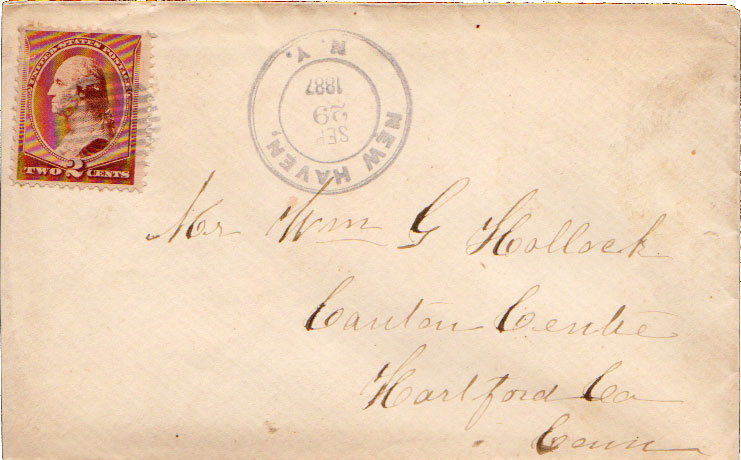 UNITED STATES POSTAGE
TWO 2 CENTS
NEW HAVEN,
N. Y.
SEP
29
1887
Mr Wm G Hollock
Canton Centre
Hartford Co
Conn